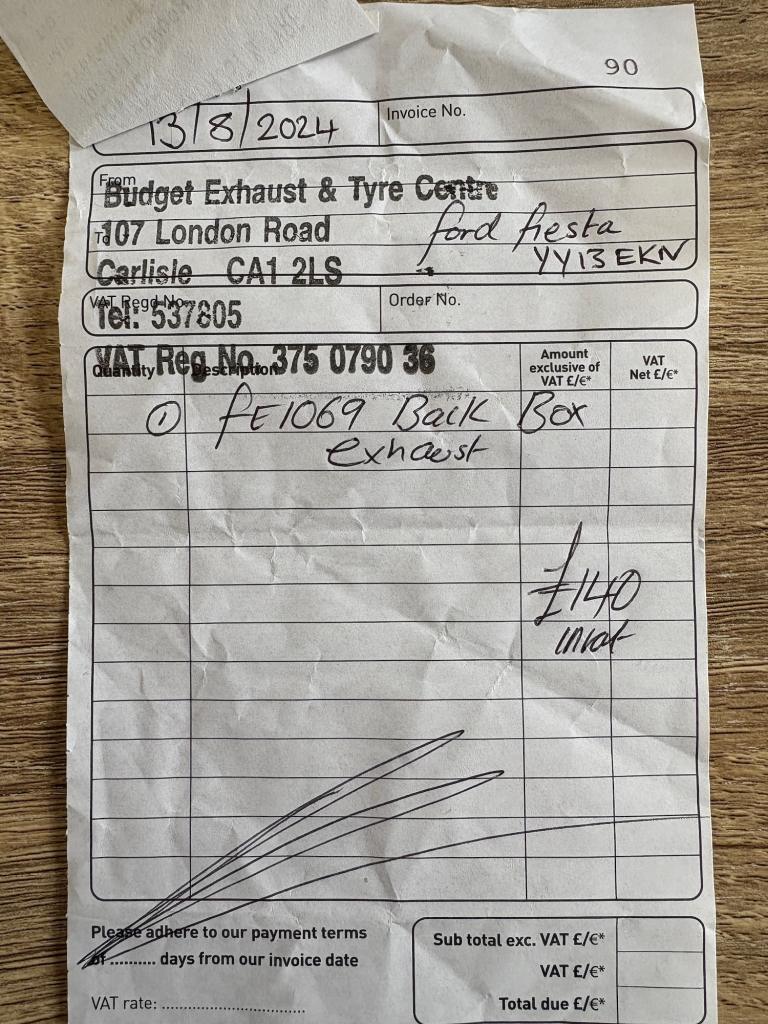 90
13/8/2024
Invoice No.
From
Budget Exhaust & Tyre Centre
To
107 London Road
ford fiesta
Carlisle CA1 2LS
YY13 EKN
VAT Regd No.
Order No.
Tel: 537805
VAT Reg No. 375 0790 36
Quantity
Description
Amount exclusive of VAT £/€*
VAT Net £/€*
1 FE1069 Back Box
exhaust
£140
invat
Please adhere to our payment terms
of .......... days from our invoice date
VAT rate: ................................
Sub total exc. VAT £/€*
VAT £/€*
Total due £/€*